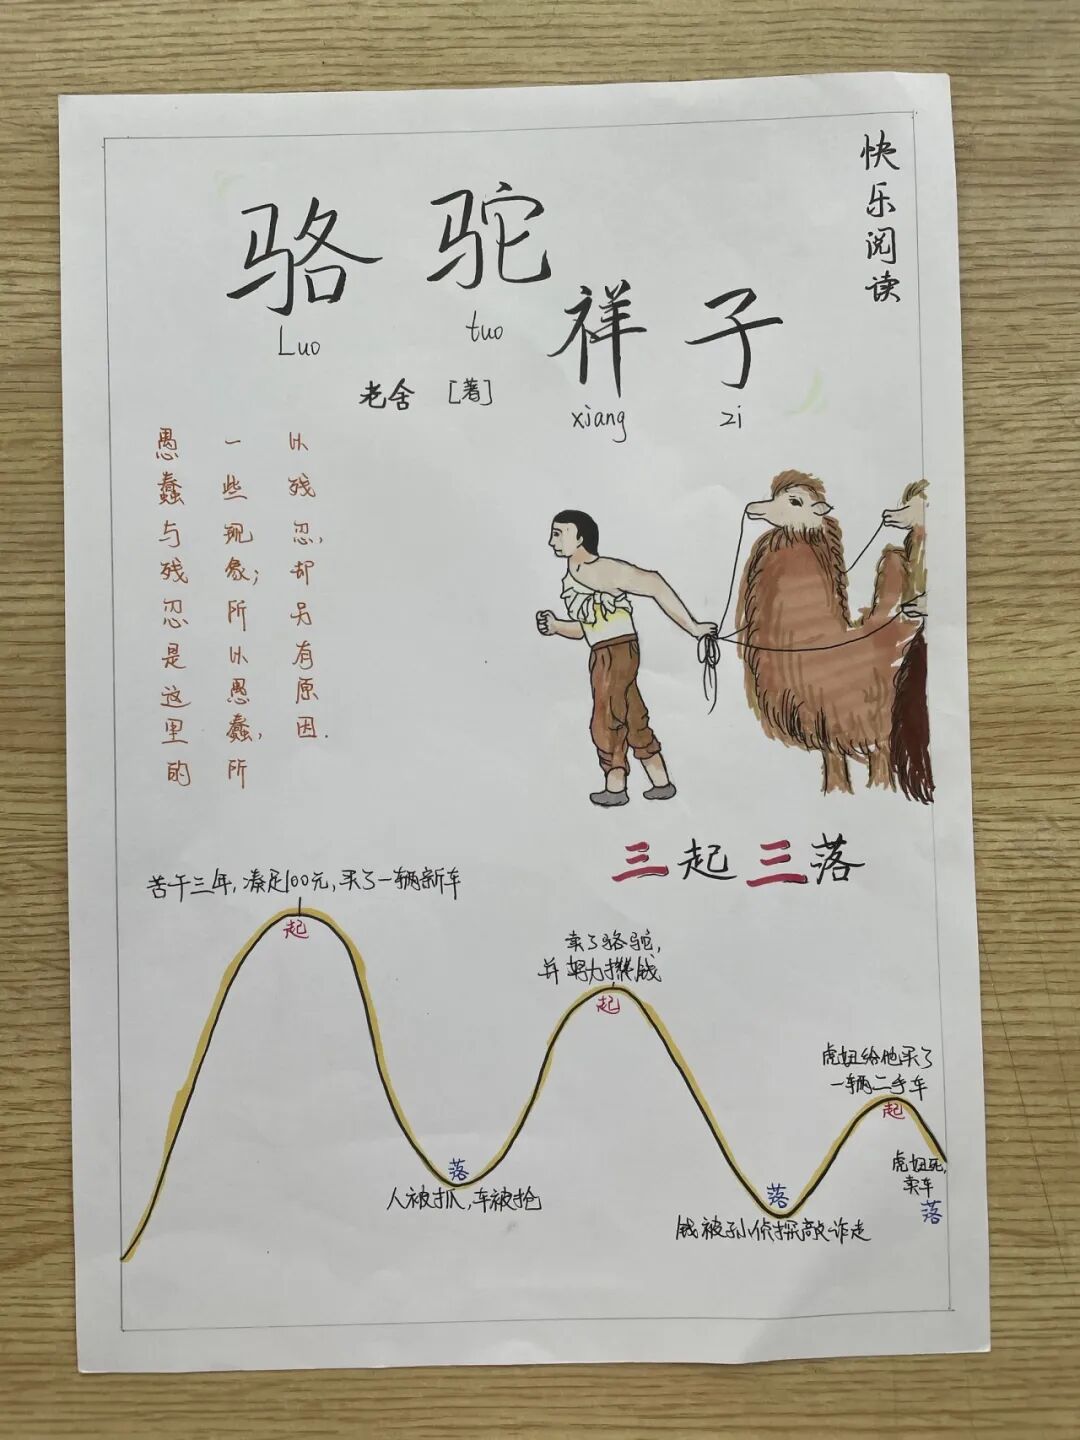 快乐阅读
骆驼
Luo tuo
祥子
xiang zi
老舍 [著]
愚蠢与残忍是这里的
一些现象；所以愚蠢，所
以残忍，却另有原因.
三起三落
苦干三年，凑足100元，买了一辆新车
起
人被抓，车被抢
落
卖了骆驼，
并努力攒钱
起
落
钱被孙侦探敲诈走
虎妞给他买了
一辆二手车
起
虎妞死，
卖车
落